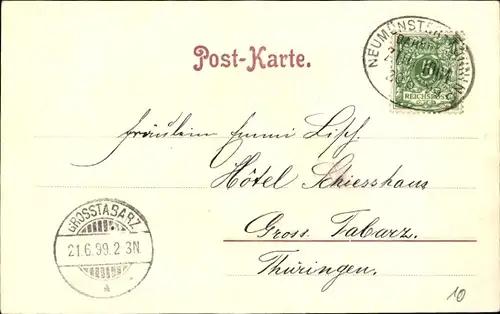 Post-Karte.
NEUMÜNSTER
BAHNPOST
5
REICHSPOST
Fräulein Emmi Lisch.
Hôtel Schiesshaus
Gross Tabarz.
Thüringen.
GROSSTABARZ
21.6.99.2-3N.
10